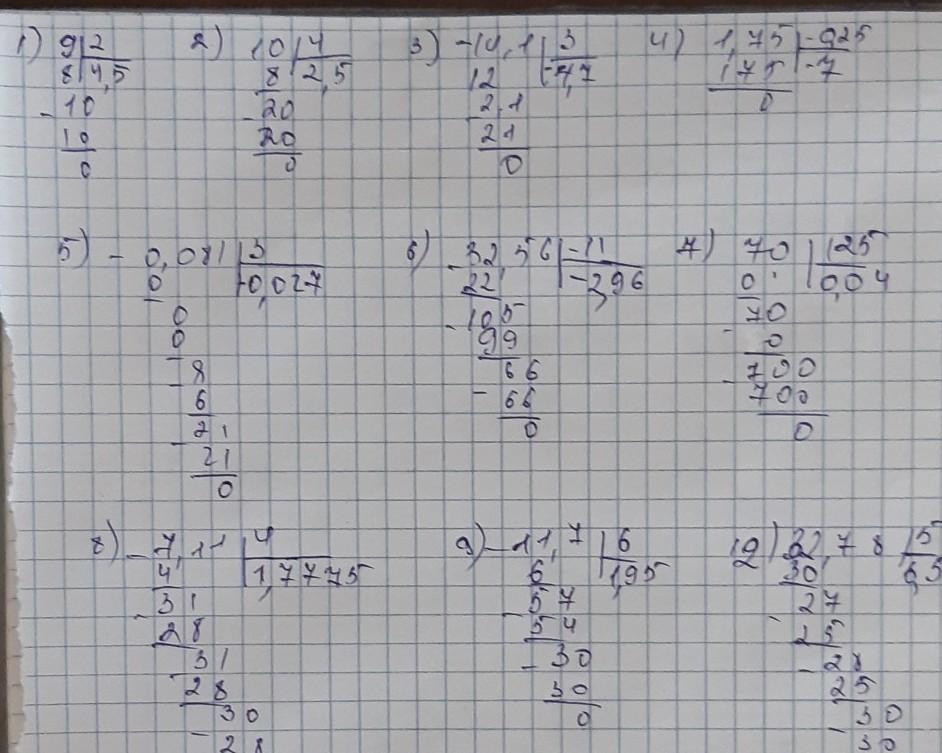 1) 9 2 2) 10 4 3) -14,1 3 4) 1,75 -0,25
8 4,5 8 2,5 12 -4,7 175 -7
- 10 - 20 2 1 0
10 20 21
0 0 0
5) - 0,081 3 6) - 32,56 -11 7) 70 125
0 -0,027 22 -2,96 0 0,04
0 - 105 70
0 99 - 0
- 8 66 - 700
6 - 66 700
- 21 0 0
21
0
8) - 7,11 4 9) - 11,7 6 10) 32,78 5
4 1,7775 6 1,95 30
- 31 - 57 - 27
28 54 25
31 - 30 - 28
28 30 25
30 0 - 30
- 28 30